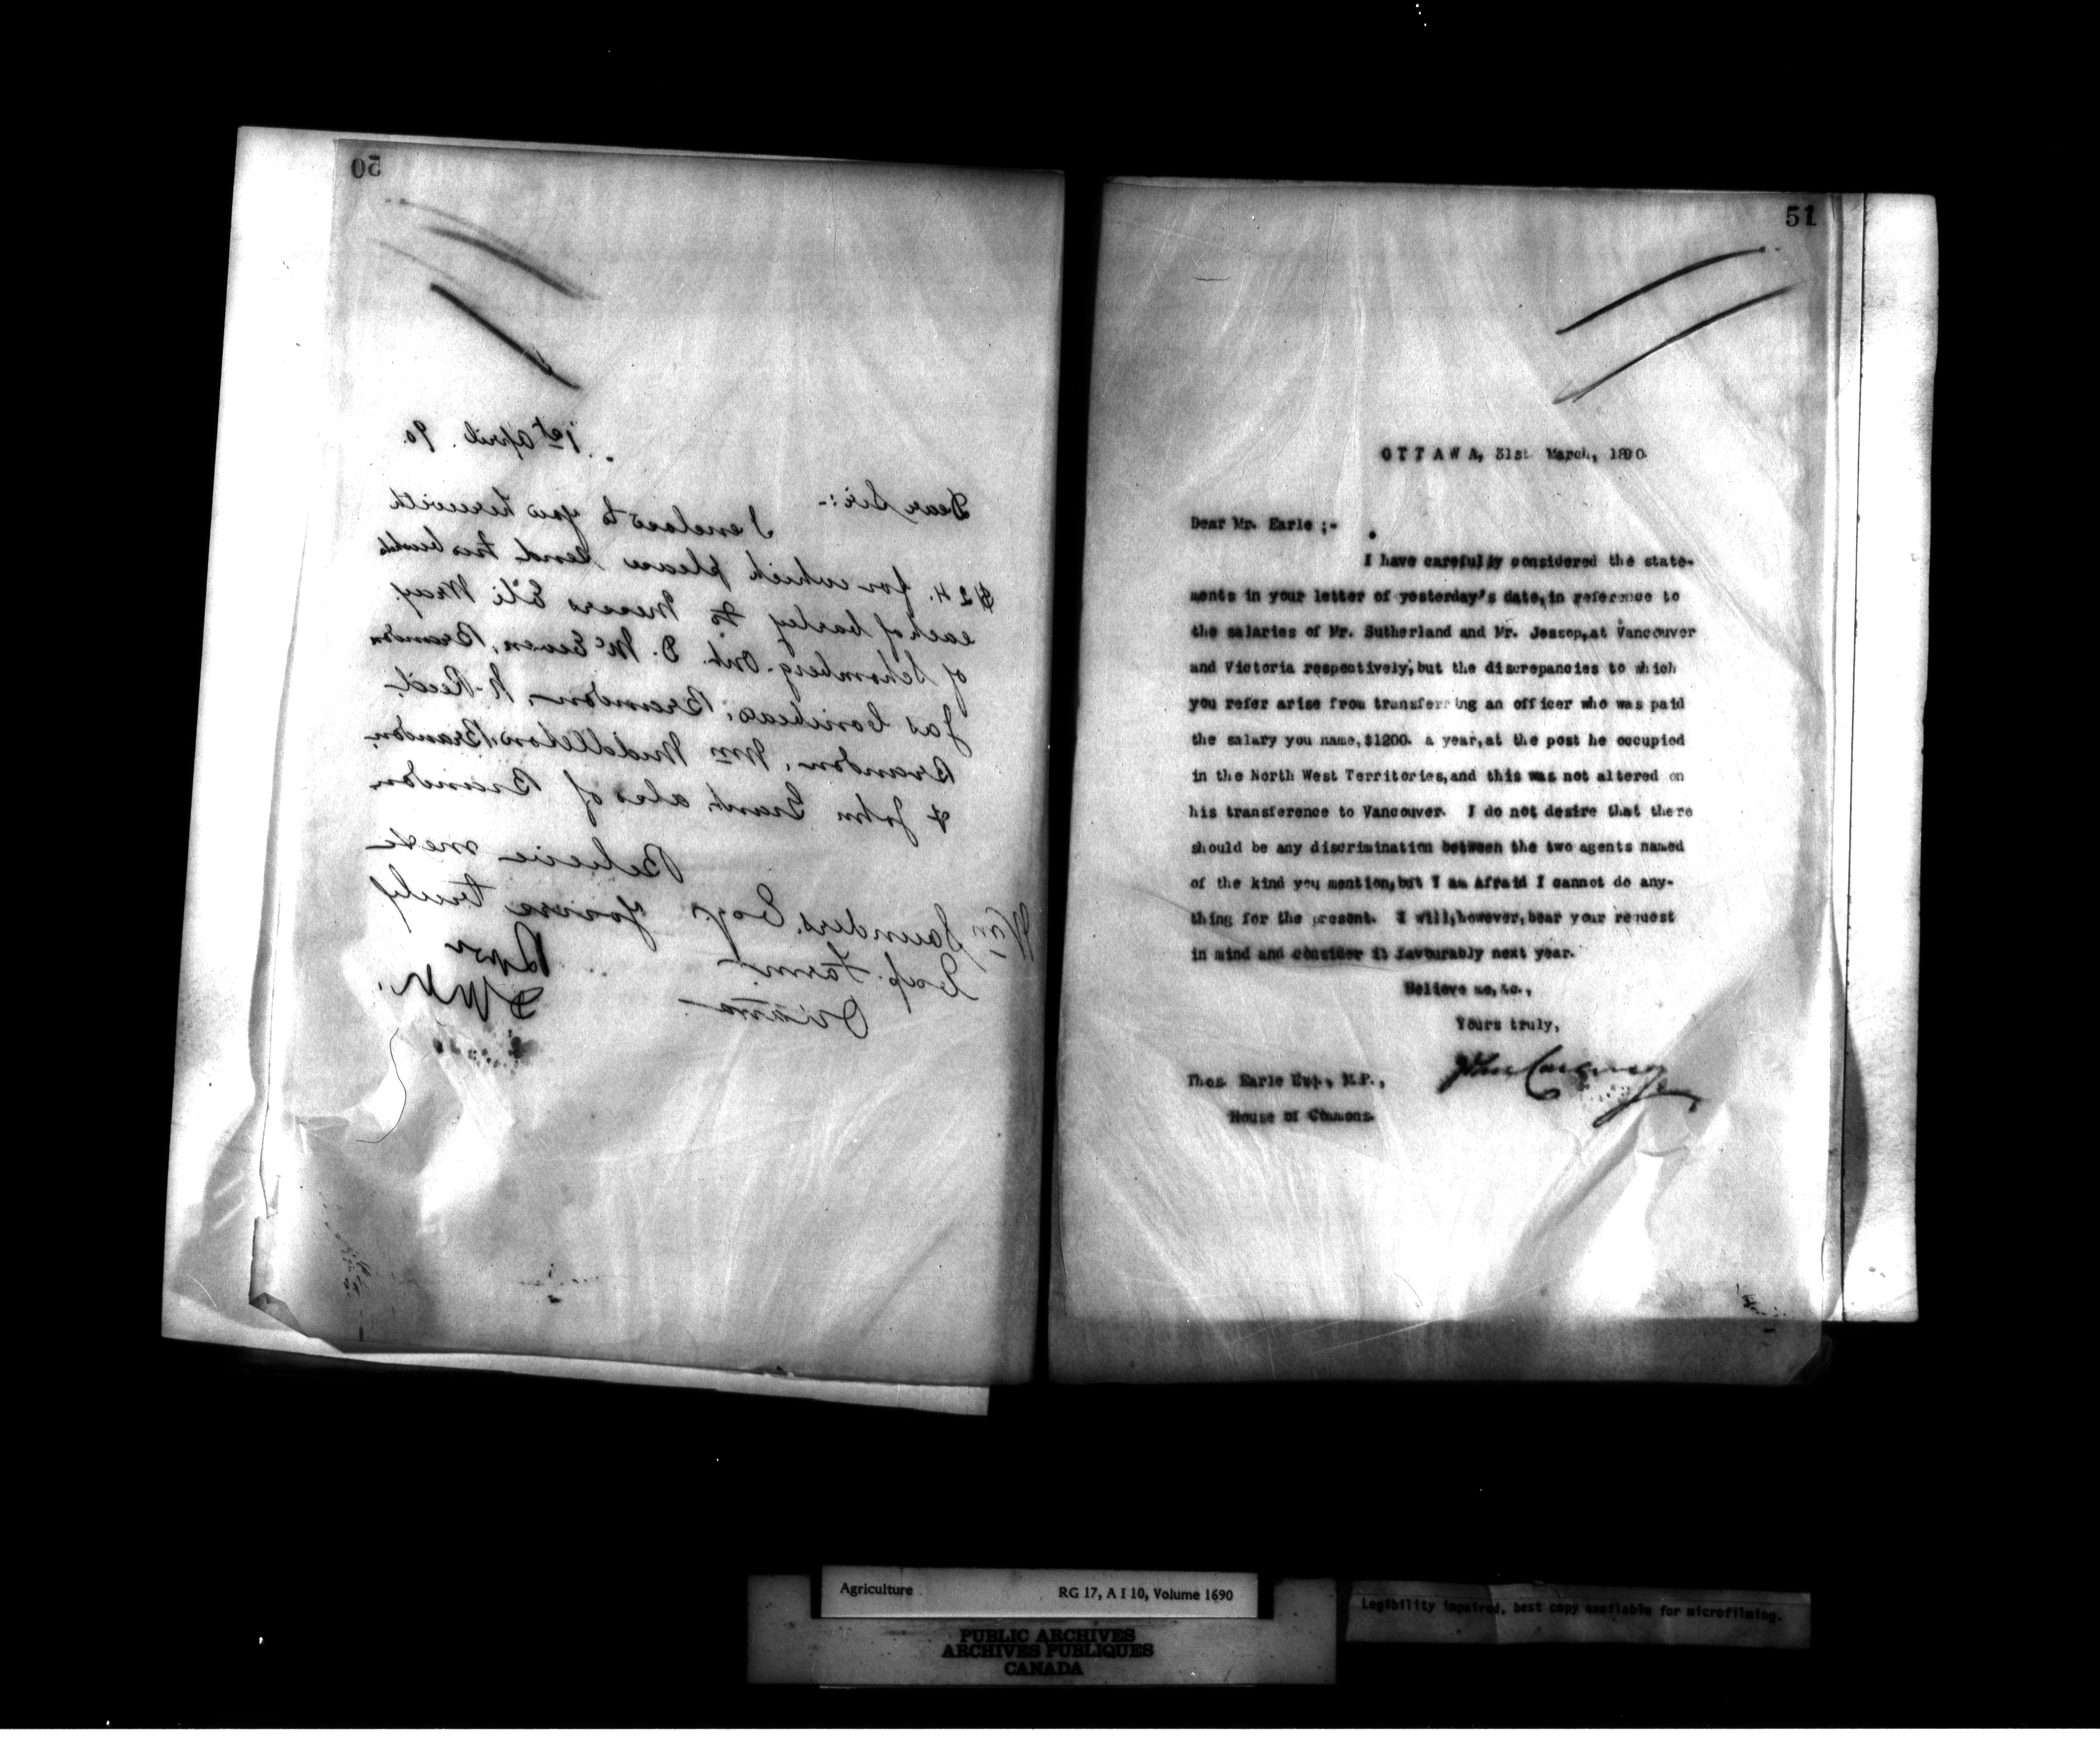 50
1st April. 90.
Dear Sir:-
I enclose to you herewith
$24. for which please send two bushels
each of barley to Messrs Eli Wray
of Schomberg. Ont. D. McEwen, Brandon
Jas Brandon, N. Reid.
Brandon, Wm Middleton, Brandon,
& John Grant also of Brandon.
Believe me &c
Yours truly
Wm Saunders. Esqr
Exp. Farm
Ottawa
51
OTTAWA, 31st March, 1890.
Dear Mr. Earle ;-
I have carefully considered the state-
ments in your letter of yesterday's date, in reference to
the salaries of Mr. Sutherland and Mr. Jessop, at Vancouver
and Victoria respectively, but the discrepancies to which
you refer arise from transferring an officer who was paid
the salary you name, $1200. a year, at the post he occupied
in the North West Territories, and this was not altered on
his transference to Vancouver. I do not desire that there
should be any discrimination between the two agents named
of the kind you mention, but I am afraid I cannot do any-
thing for the present. I will, however, bear your request
in mind and consider it favourably next year.
Believe me, &c.,
Yours truly,
John Carling
Thos. Earle Esq., M.P.,
House of Commons.
Agriculture RG 17, A I 10, Volume 1690
PUBLIC ARCHIVES
ARCHIVES PUBLIQUES
CANADA
Legibility impaired, best copy available for microfilming.